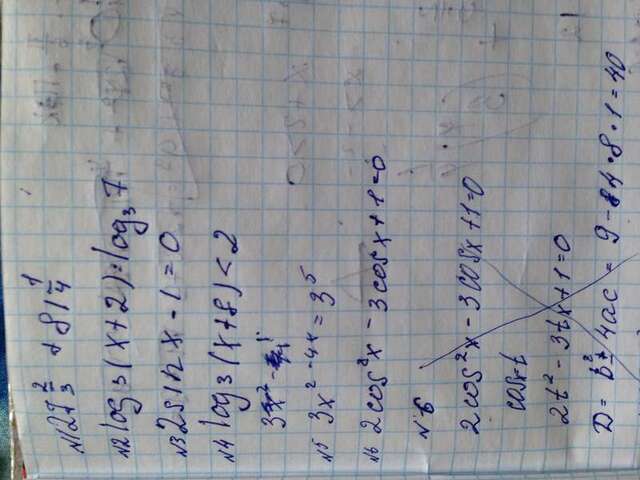 №1 27^(2/3) + 81^(1/4)
№2 log₃(x+2)=log₃7
№3 2sin x - 1 = 0
№4 log₃(x+8) < 2
№5 3x² - 4x = 3⁵
№6 2cos²x - 3cosx + 1 = 0
№6
2cos²x - 3cosx + 1 = 0
cos=t
2t² - 3tx + 1 = 0
D = b² - 4ac = 9 - 4·8·1 = 40